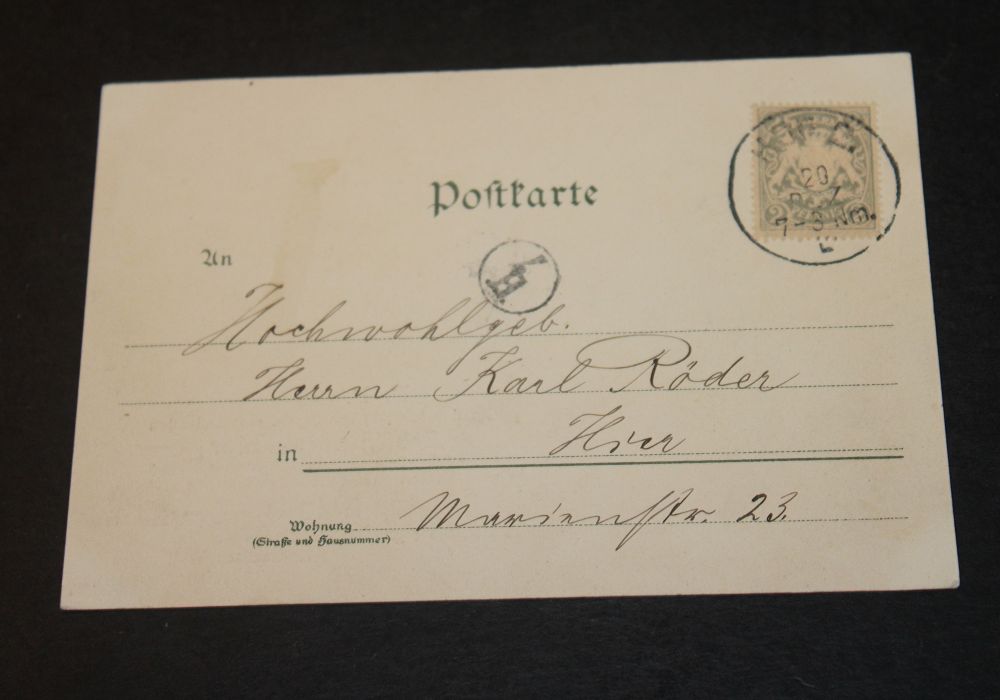 Postkarte
20
7-8 Nm.
2 2
An
Hochwohlgeb.
Herrn Karl Röder
in Hier
Wohnung Marienstr. 23.
(Straße und Hausnummer)